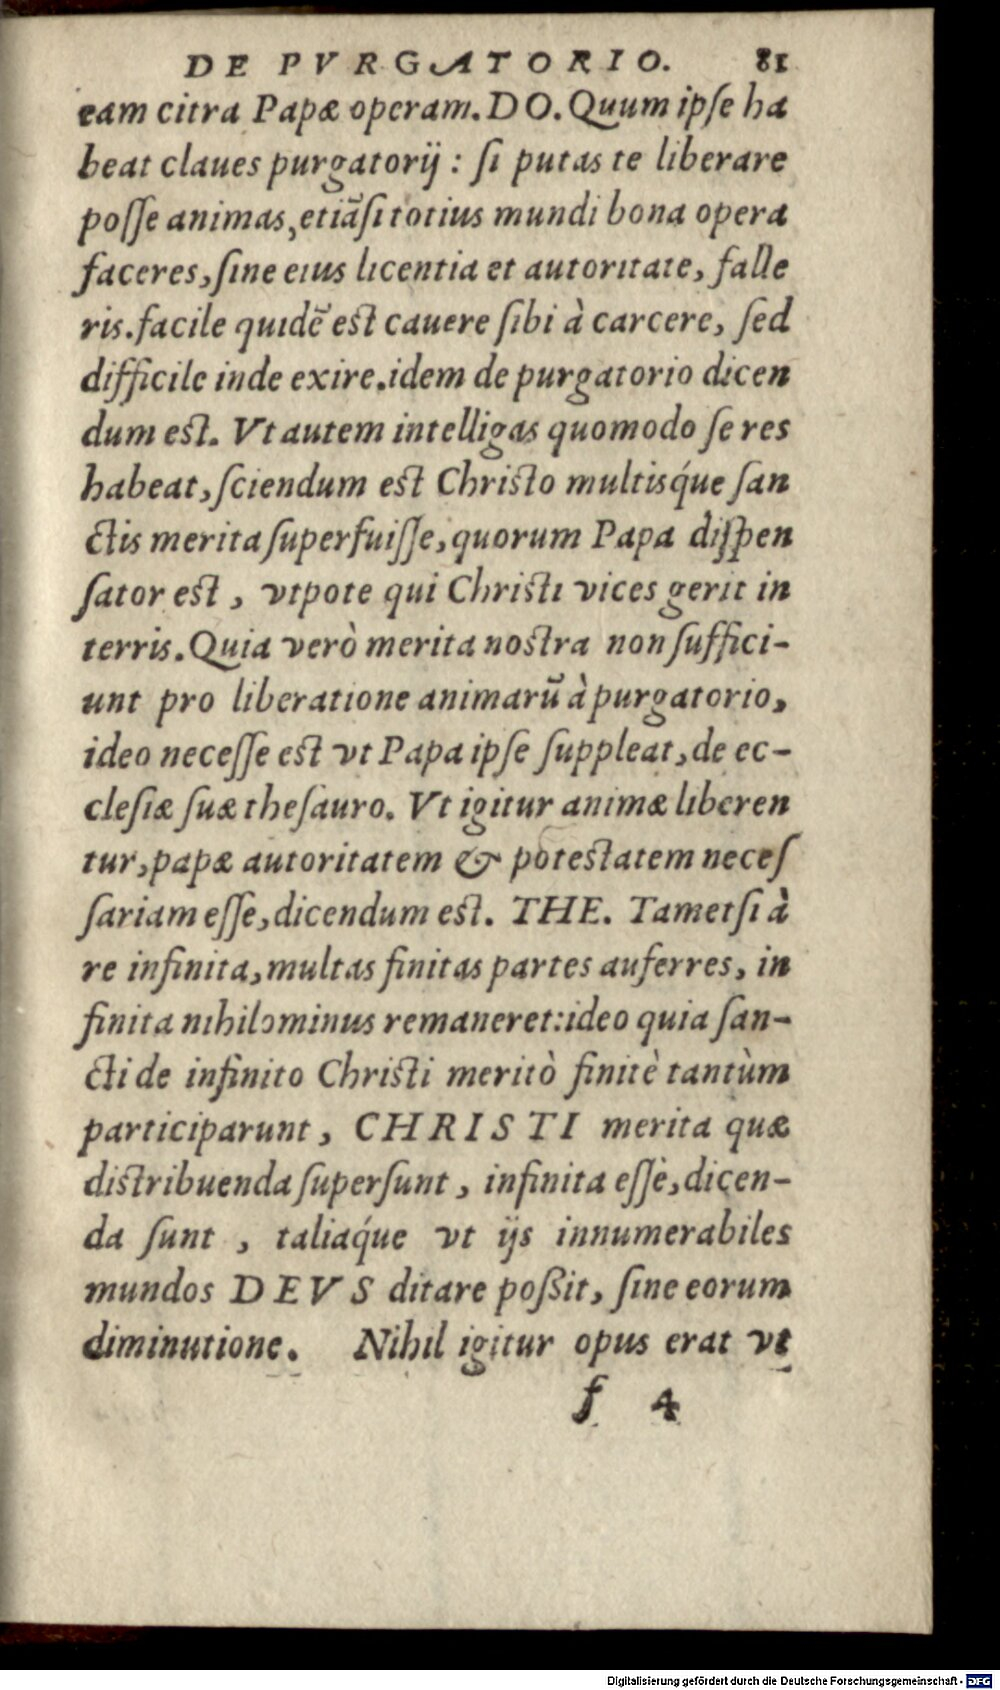 DE PVRGATORIO. 81
eam citra Papæ operam. DO. Quum ipſe ha
beat claues purgatorij : ſi putas te liberare
poſſe animas, etiãſi totius mundi bona opera
faceres, ſine eius licentia et autoritate, falle
ris. facile quidẽ est cauere ſibi à carcere, ſed
difficile inde exire. idem de purgatorio dicen
dum est. Vt autem intelligas quomodo ſe res
habeat, ſciendum est Christo multisq́ue ſan
ctis merita ſuperfuiſſe, quorum Papa diſpen
ſator est, vtpote qui Christi vices gerit in
terris. Quia verò merita nostra non ſuffici-
unt pro liberatione animarũ à purgatorio,
ideo neceſſe est vt Papa ipſe ſuppleat, de ec-
cleſiæ ſuæ theſauro. Vt igitur animæ liberen
tur, papæ autoritatem & potestatem neceſ
ſariam eſſe, dicendum est. THE. Tametſi à
re infinita, multas finitas partes auferres, in
finita nihilominus remaneret: ideo quia ſan-
cti de infinito Christi meritò finitè tantùm
participarunt, CHRISTI merita quæ
distribuenda ſuperſunt, infinita eſſè, dicen-
da ſunt, taliaq́ue vt ijs innumerabiles
mundos DEVS ditare poßit, ſine eorum
diminutione. Nihil igitur opus erat vt
f 4
Digitalisierung gefördert durch die Deutsche Forschungsgemeinschaft - DFG